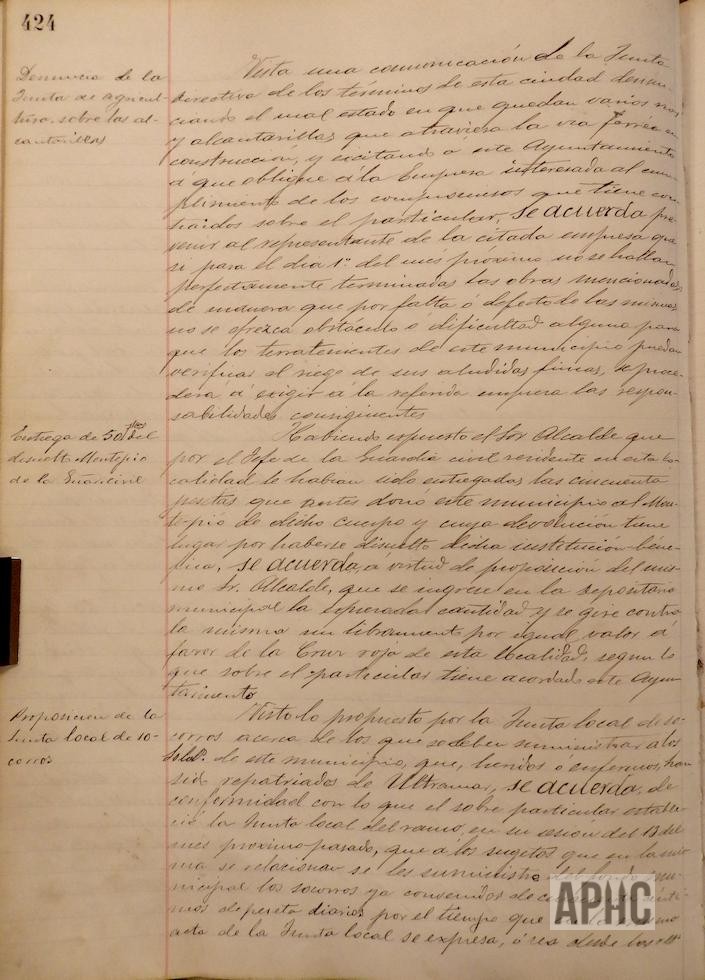 424
Denuncia de la
Junta de agricul-
tura, sobre las al-
cantarillas
Vista una comunicación de la Junta
directiva de los términos de esta ciudad denun-
ciando el mal estado en que quedan varios
y alcantarillas que atraviesa la via férrea en
construccion, y excitando a este Ayuntamiento
á que obligue á la Empresa interesada al cum-
plimiento de los compromisos que tiene con-
traidos sobre el particular, se acuerda pre-
venir al representante de la citada empresa que
si para el dia 1º del mes próximo no se hallan
perfectamente terminadas las obras mencionadas,
de manera que por falta ó defecto de las mismas
no se ofrezca obstáculo ó dificultad alguna para
que los terratenientes de este municipio puedan
verificar el riego de sus aludidas fincas, se proce-
derá á exigir á la referida empresa las respon-
sabilidades consiguientes
Entrega de 50 ptas del
disuelto Montepio
de la Guar. civil
Habiendo expuesto el Sor Alcalde que
por el Jefe de la Guardia civil residente en esta lo-
calidad le habian sido entregadas las cincuenta
pesetas que antes donó este municipio al Mon-
tepio de dicho cuerpo y cuya devolución tiene
lugar por haberse disuelto dicha institución béne-
fica, se acuerda, a virtud de proposición del mis-
mo Sr. Alcalde, que se ingrese en la depositaria
municipal la expresada cantidad y se gire contra
la misma un libramiento por igual valor á
favor de la Cruz roja de esta localidad, segun lo
que sobre el particular tiene acordado este Ayun-
tamiento
Proposicion de la
Junta local de so-
corros
Visto lo propuesto por la Junta local de so-
corros acerca de los que se deben suministrar a los
Solds. de este municipio, que, heridos ó enfermos, han
sido repatriados de Ultramar, se acuerda, de
conformidad con lo que el sobre particular estable-
ció la Junta local del ramo, en su sesión del 13 del
mes próximo pasado, que á los sugetos que en la mis-
ma se relacionan se les suministre del fondo mu-
nicipal los socorros ya convenidos de
mos de peseta diarios por el tiempo que en la misma
acta de la Junta local se expresa, ó sea desde los
APHC